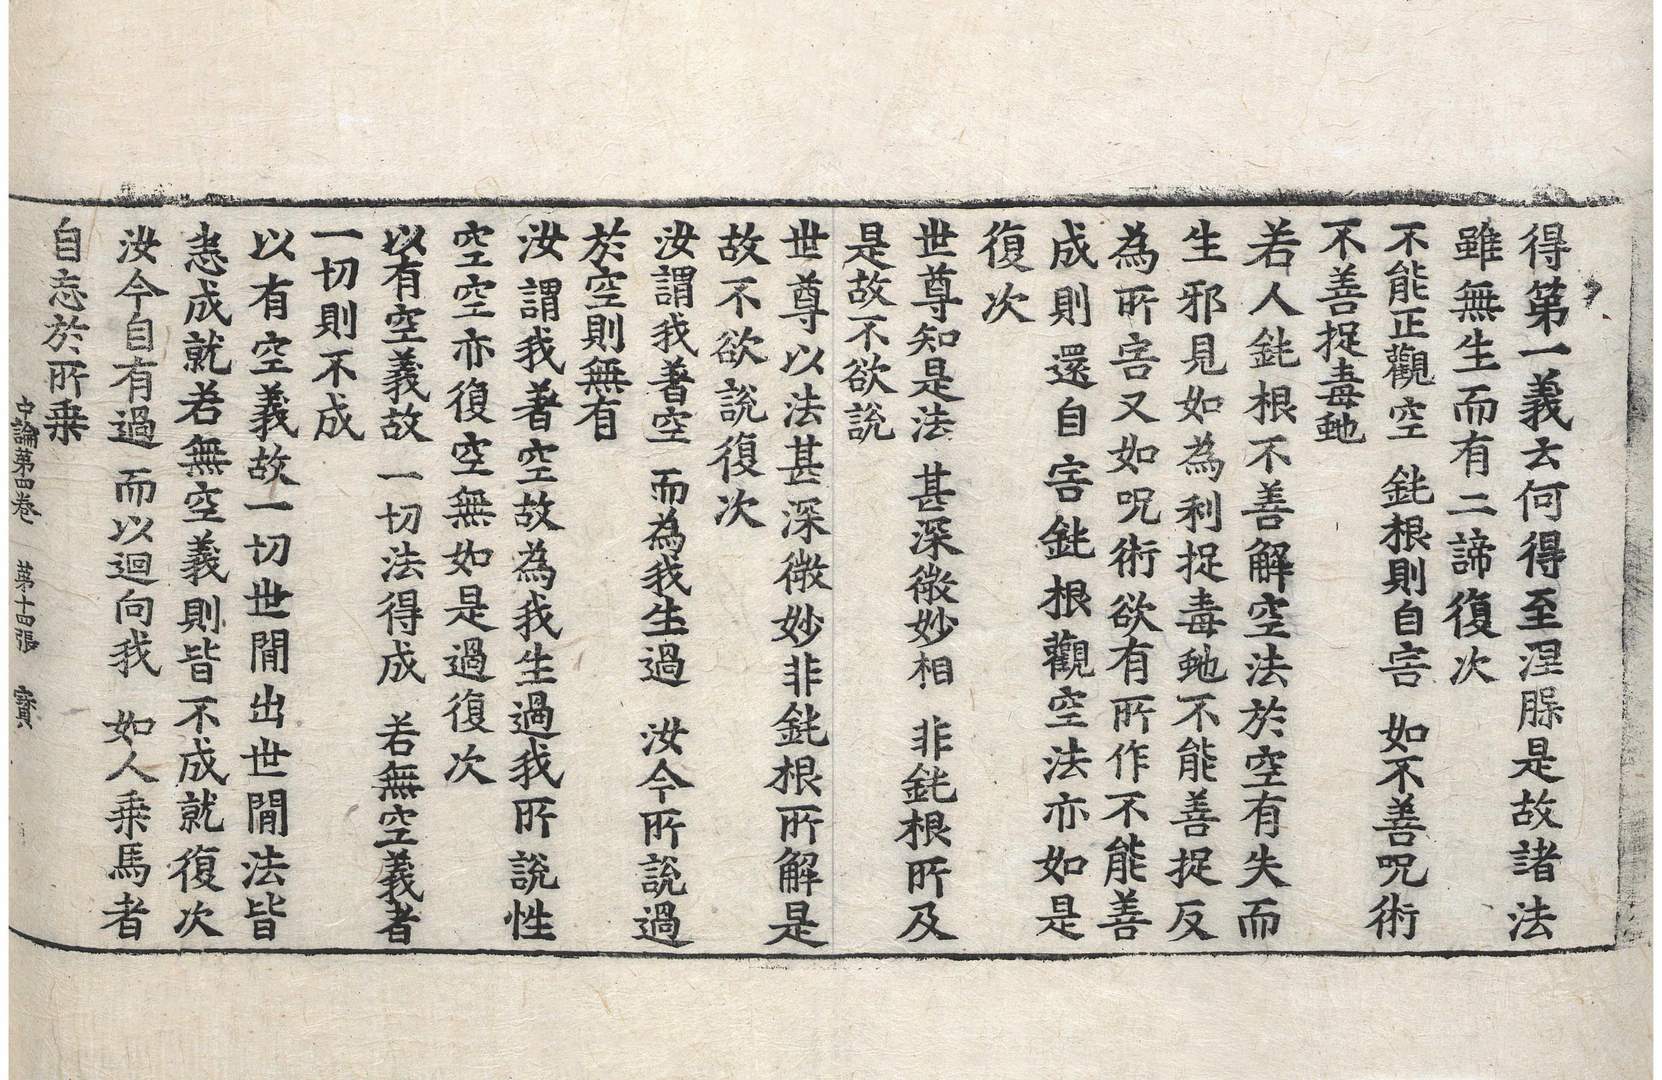 得第一義云何得至涅槃是故諸法
雖無生而有二諦復次
不能正觀空 鈍根則自害 如不善呪術
不善捉毒虵
若人鈍根不善解空法於空有失而
生邪見如為利捉毒虵不能善捉反
為所害又如呪術欲有所作不能善
成則還自害鈍根觀空法亦如是
復次
世尊知是法 甚深微妙相 非鈍根所及
是故不欲說
世尊以法甚深微妙非鈍根所解是
故不欲說復次
汝謂我著空 而為我生過 汝今所說過
於空則無有
汝謂我著空故為我生過我所說性
空空亦復空無如是過復次
以有空義故 一切法得成 若無空義者
一切則不成
以有空義故一切世間出世間法皆
悉成就若無空義則皆不成就復次
汝今自有過 而以迴向我 如人乘馬者
自忘於所乘
中論第四卷 第十四張 寶